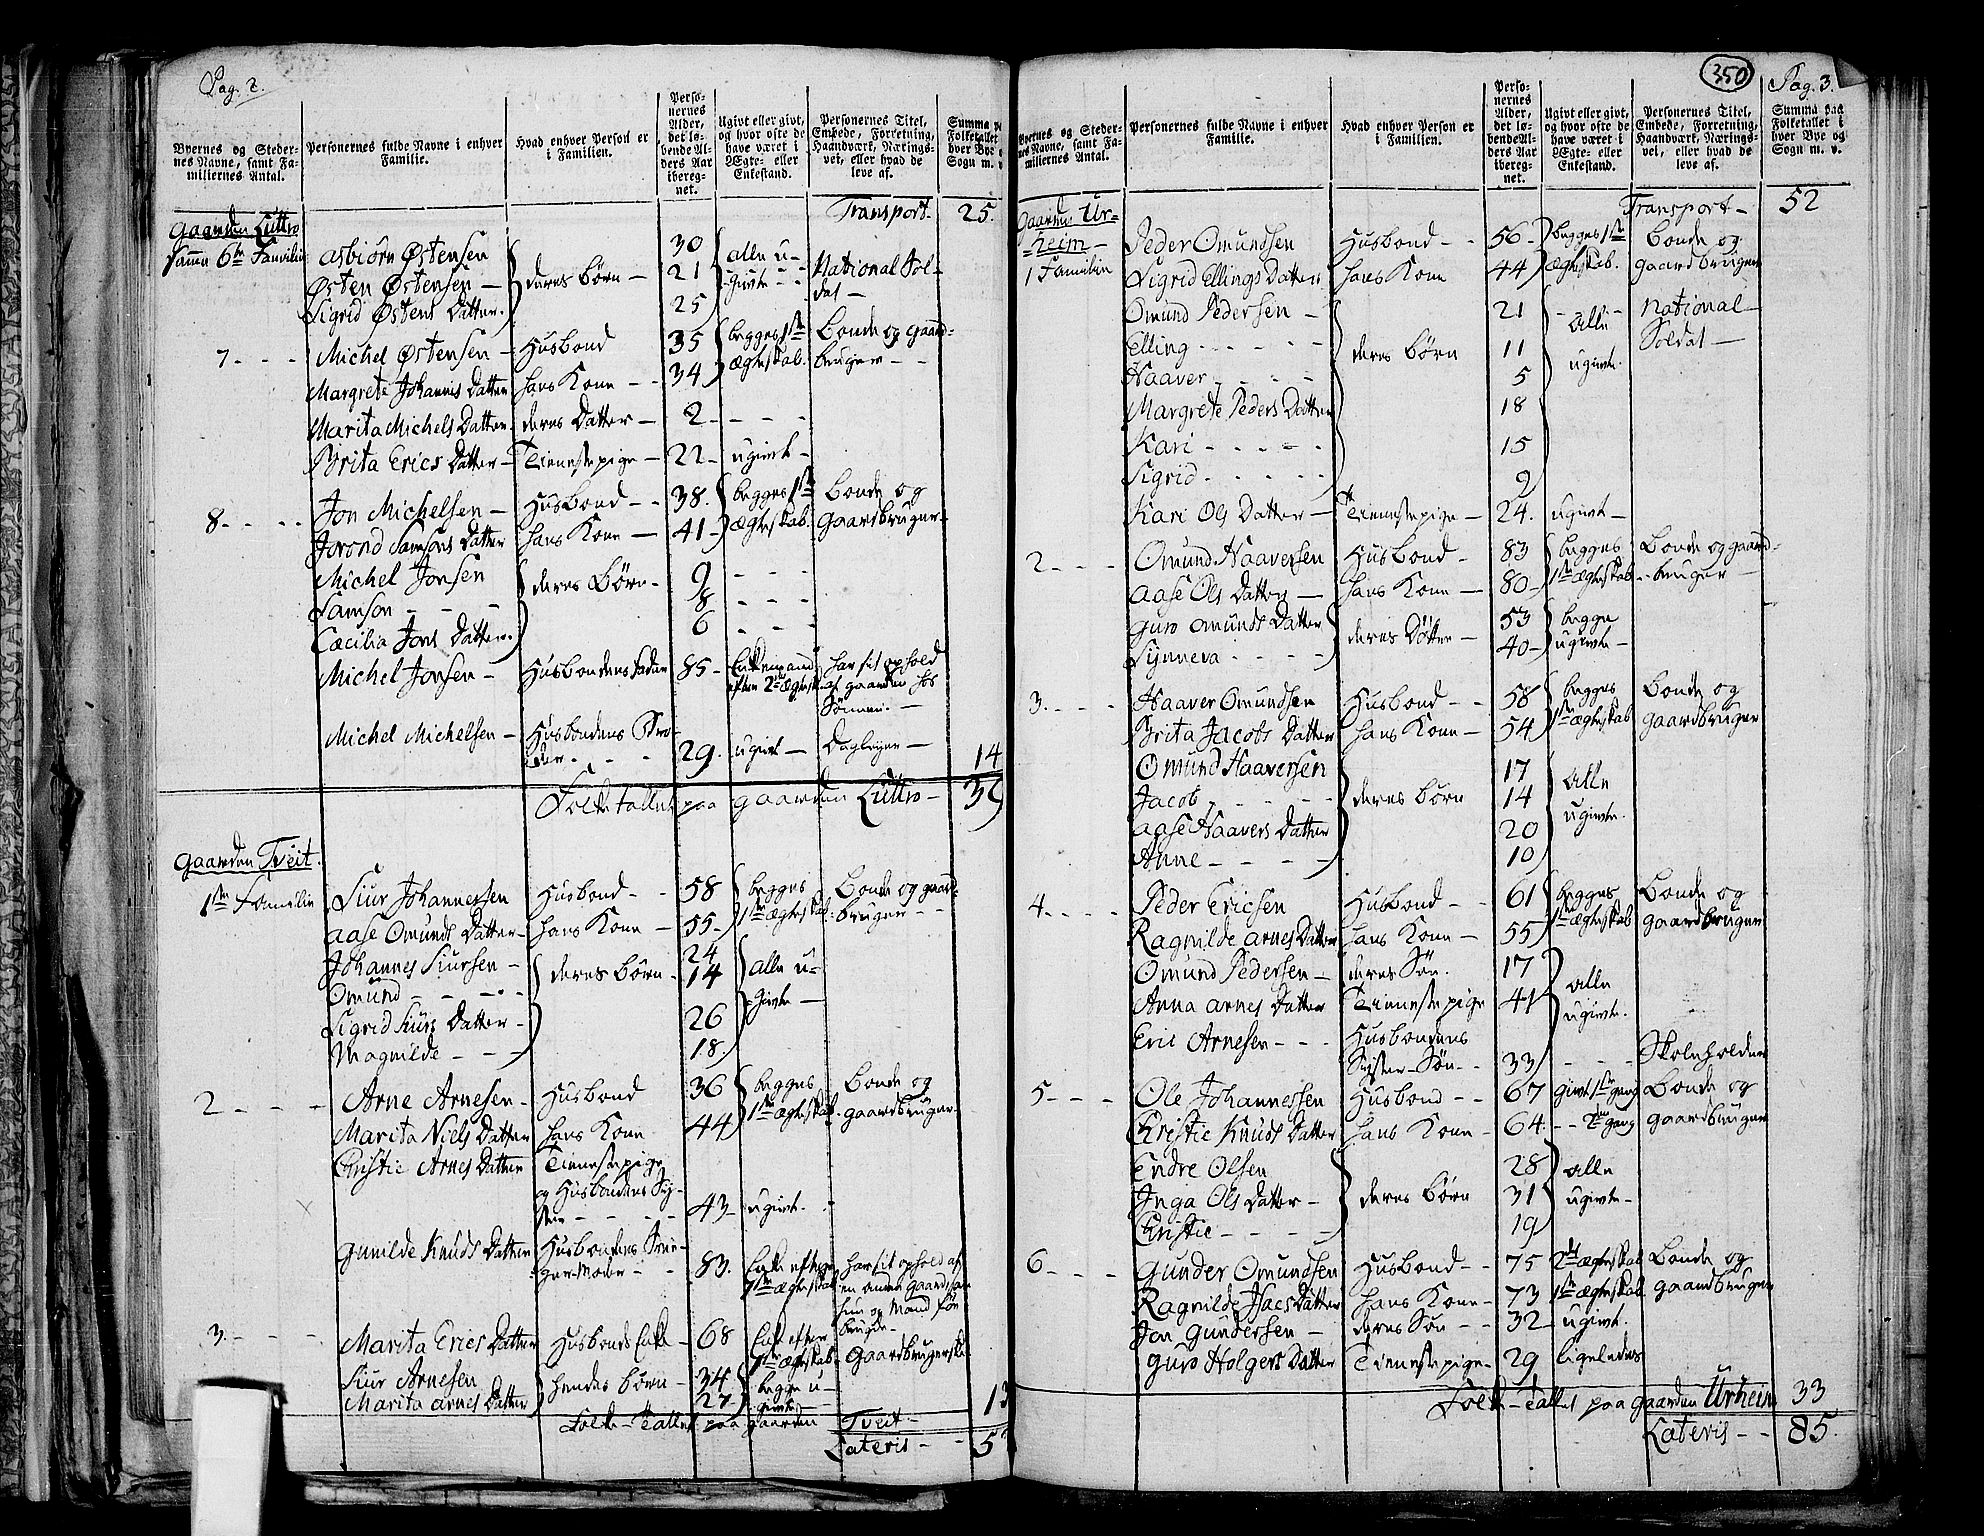 Pag. 2.
Byernes og Stedernes Navne, samt Familiernes Antal.
Personernes fulde Navne i enhver Familie.
Hvad enhver Person er i Familien.
Personernes Alder, det løbende Alders Aar iberegnet.
Ugivt eller givt, og hvor ofte de have været i Ægte- eller Enkestand.
Personernes Titel, Embede, Forretning, Haandværk, Næringsvei, eller hvad de leve af.
Summa paa Folketallet
Sogn m. v.
Transport- 25.
Gaarden Luttro
samme 6te Familie Asbiörn Östensen 30
Östen Östensen - deres börn - 21 alle ugivte - - National Soldat -
Sigrid Östens Datter. 25
7 - - - Michel Östensen - Husbond 35 begges 1ste Ægteskab. Bonde og gaardbruger - -
Margrete Johannis Datter hans Kone - - 34
Marita Michels Datter deres Datter - 2 - - - -
Brita Erics Datter - Tienestepige - 22 - ugivt -
8 - - - - Jon Michelsen - Husbond - - 38. begges 1ste Ægteskab. Bonde og Gaardbruger -
Jorond Samsons Datter hans Kone - 41 -
Michel Jonsen deres Börn - 9 - - -
Samson - - - 8 - - -
Cæcilia Jons Datter. 6 - - -
Michel Jonsen - Husbondens Fader 85 - Enkemand efter 2det Ægtesk. har sit ophold af gaarden hos Sönnen. -
Michel Michelsen - Husbondens Broder - - - 29. ugivt - Dagleyer - 14
Folketallet paa gaarden Luttro - 39
Gaarden Tveit.
1ste Familie Siur Johannessen Husbond - - 58 begges 1ste Ægteskab. Bonde og gaardbruger - -
Aase Omunds Datter - hans Kone - 55 -
Johannes Siursen - deres börn - 24 alle ugivte -
Omund - - - - 14
Sigrid Siurs Datter - 26
Magnilde - - - 18.
2 - - - - Arne Arnesen - Husbond 36 begges 1ste Ægteskab. Bonde og gaardbruger.
Marita Niels Datter hans Kone 44
Christie Arnes Datter Tienestepige og Husbondens Syster - - - 43 - ugivt.
Gunilde Knuds Datter Husbondens Svigermoder - - 83. Enke efter 1ste Ægteskab har sit ophold af en anden gaard som hun og Mand för brugde -
3. - - - Marita Erics Datter Husbonds Enke - 68 Enke efter 1ste Ægteskab. Gaardbrugerske
Siur Arnesen hendes börn - 34 begge ugivte -
Marita Arnes Datter 27
Folke-Tallet paa gaarden Tveit - 13
Lateris - - 5
350
Pag. 3.
Byernes og Stedernes Navne, samt Familiernes Antal.
Personernes fulde Navne i enhver Familie.
Hvad enhver Person er i Familien.
Personernes Alder, det løbende Alders Aar iberegnet.
Ugivt eller givt, og hvor ofte de have været i Ægte- eller Enkestand.
Personernes Titel, Embede, Forretning, Haandværk, Næringsvei, eller hvad de leve af.
Summa paa Folketallet i hver Bye og Sogn m. v.
Transport - 52
Gaarden Urheim -
1 Familie Peder Omundsen Husbond - - 56 - begges 1ste Ægteskab. Bonde og gaardbruger
Sigrid Ellings Datter hans Kone 44
Omund Pedersen - deres börn 21 alle ugivte. National Soldat -
Elling - - - - - 11
Haaver - - - - 5
Margrete Peders Datter 18
Kari - - - - - 15
Sigrid - - - - - 9
Kari Ols Datter - Tienestepige - 24. ugivt -
2 - - - Omund Haaversen Husbond - 83 begges 1ste Ægteskab - Bonde og gaardbruger -
Aase Ols Datter - hans Kone - 80 -
Guro Omunds Datter deres Døtter - 53 begge ugivte -
Synneva - - - - 40 -
3. - - - Haaver Omundsen Husbond - - 58 begges 1ste Ægteskab Bonde og gaardbruger
Brita Jacobs Datter hans Kone - 54
Omund Haaversen deres börn 17 alle ugivte.
Jacob - - - - 14
Aase Haavers Datter 20
Anne - - - - 10
4. - - - Peder Ericsen Husbond - - 61 begges 1ste Ægteskab Bonde og gaardbruger
Ragnilde Arnes Datter hans Kone - 55
Omund Pedersen - deres Sön. 17 alle ugivte.
Anna Arnes Datter Tienestepige 41
Eric Arnesen - - - Husbondens Syster-Sön - - 33 - - - Skoleholder
5 - - - Ole Johannessen Husbond - - 67 givt 1ste gang Bonde og gaardbruger
Christie Knuds Datter hans Kone - 64 - - - gang
Endre Olsen deres börn 28 alle ugivte -
Inga Ols Datter - 31
Christie - - - - 19
6 - - - Gunder Omundsen Husbond - - 75 2det Ægteskab Bonde og gaardbruger
Ragnilde Isacs Datter hans Kone - 73 1ste Ægteskab
Jon Gundersen - deres Sön - - 32 - ugivt.
Guro Holgers Datter Tienestepige - 29 ligeledes
Folke-Tallet paa gaarden Urheim 33
Lateris - - 85.